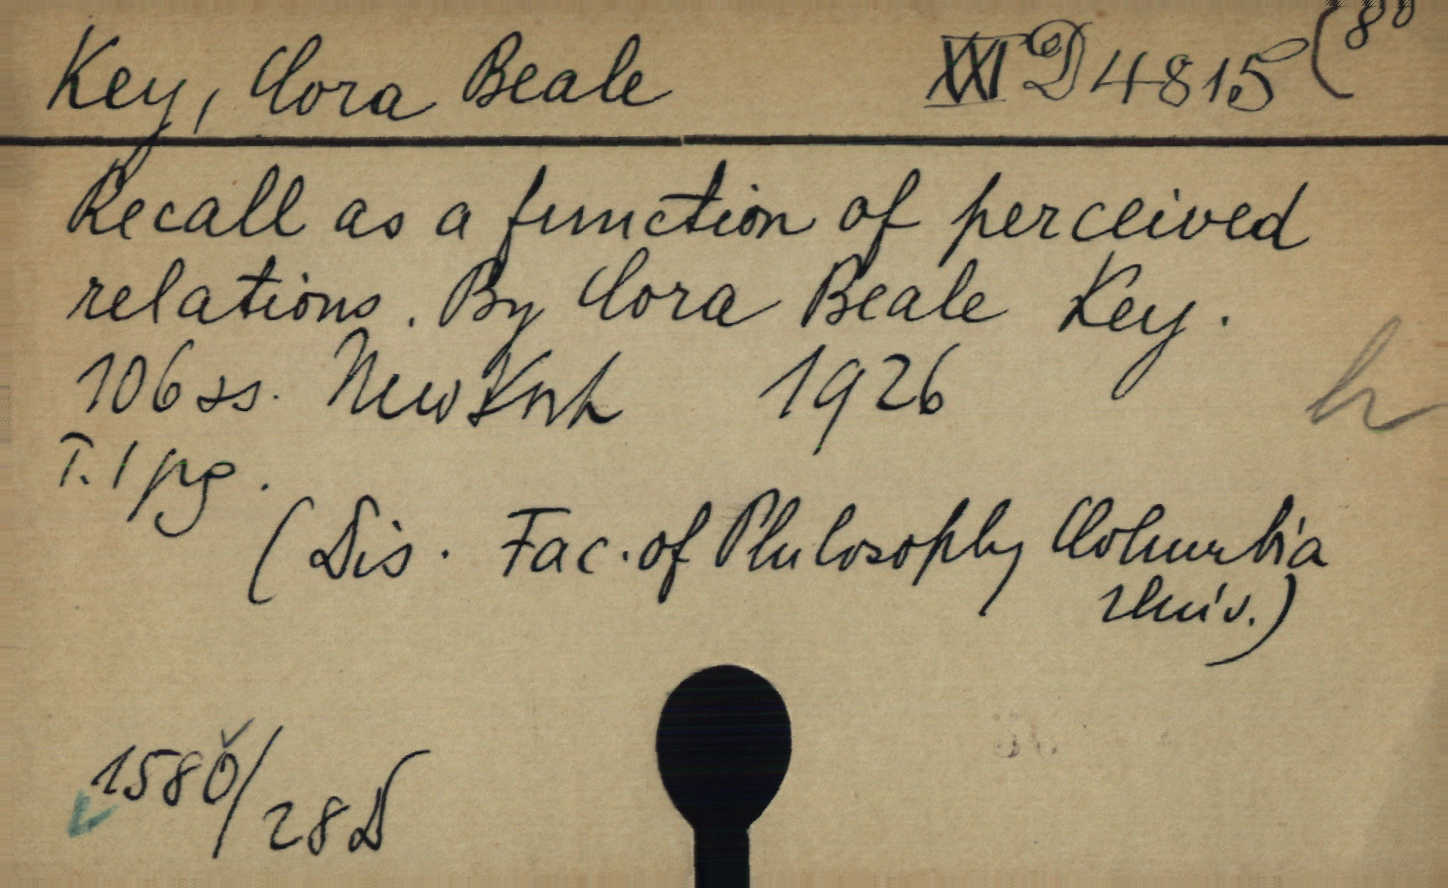 Key, Cora Beale XXI D 4815 (8°
Recall as a function of perceived
relations. By Cora Beale Key.
106 ss. New York 1926
T. 1 pg.
(Dis. Fac. of Philosophy Columbia
Univ.)
1580/28D